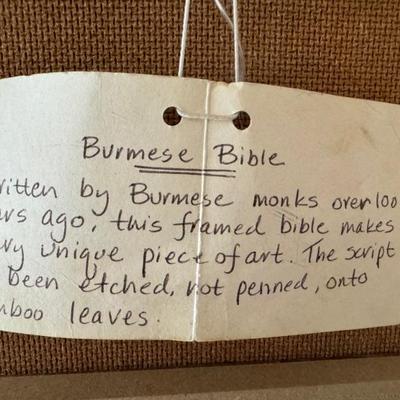 Burmese Bible
ritten by Burmese monks over 100
ars ago, this framed bible makes
ry unique piece of art. The script
been etched, not penned, onto
mboo leaves.